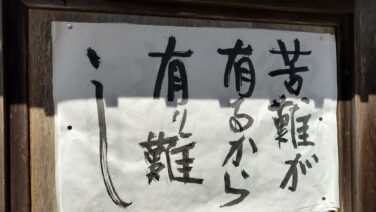 苦難が
有るから
有り難
し